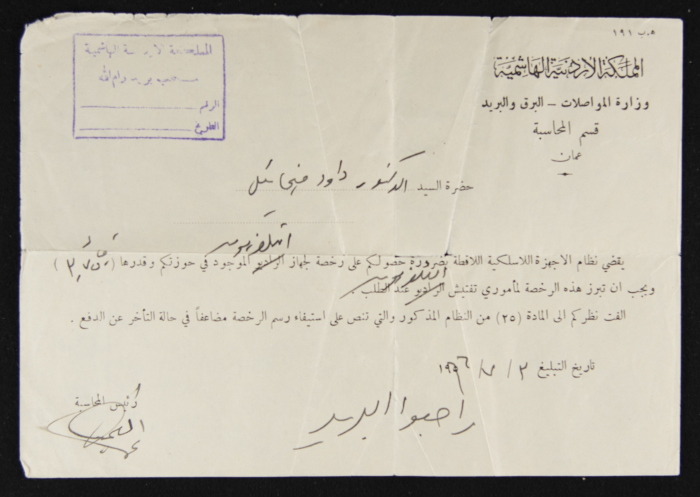 ص.ب ١٩١
المملكة الاردنية الهاشمية
وزارة المواصلات - البرق والبريد
قسم المحاسبة
عمان
المملكة الاردنية الهاشمية
مكتب بريد رام الله
الرقم
التاريخ
حضرة السيد الدكتور داود ميخائيل
التلفزيون
يقضي نظام الاجهزة اللاسلكية اللاقطة بضرورة حصولكم على رخصة لجهاز الراديو الموجود في حوزتكم وقدرها (
التلفزيون
ويجب ان تبرز هذه الرخصة لمأموري تفتيش الراديو عند الطلب .
الفت نظركم الى المادة (٢٥) من النظام المذكور والتي تنص على استيفاء رسم الرخصة مضاعفاً في حالة التأخر عن الدفع .
تاريخ التبليغ
رئيس المحاسبة
راجعوا البريد